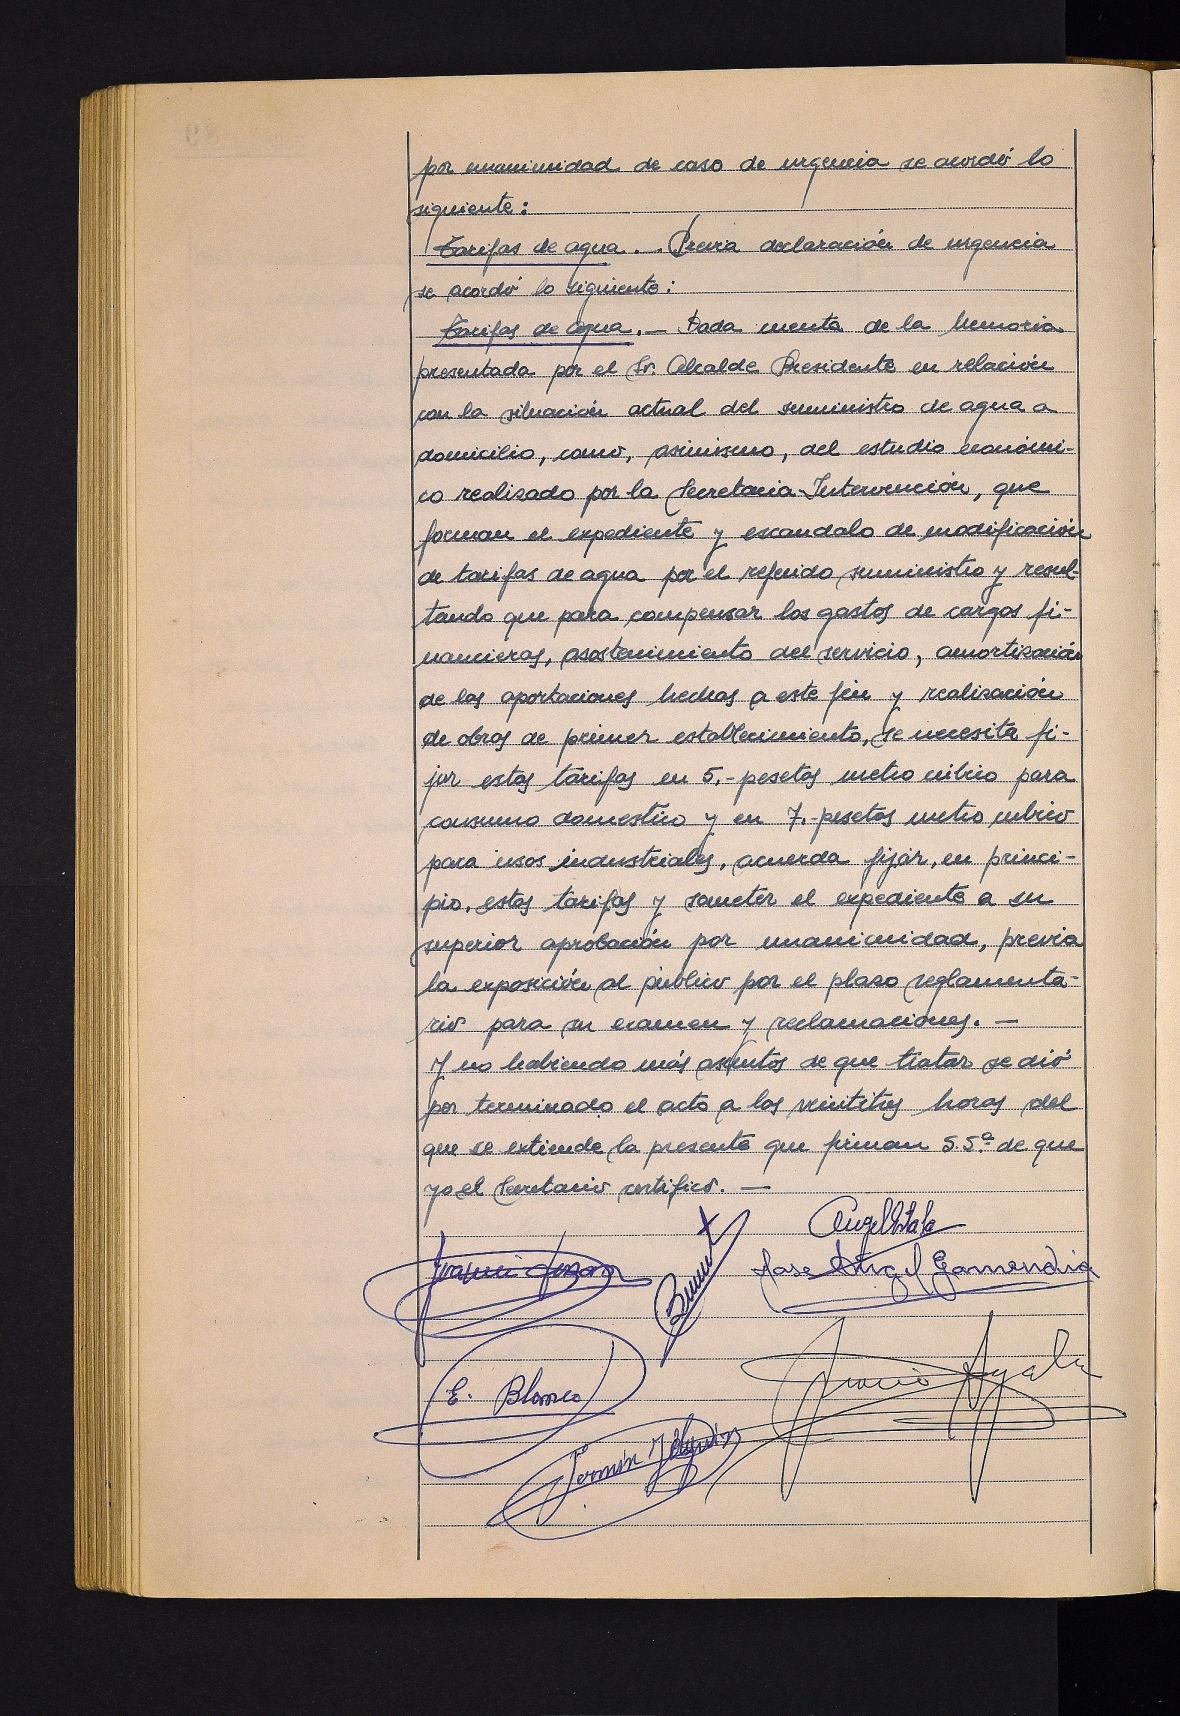 por unanimidad de caso de urgencia se acordó lo
siguiente:
Tarifas de agua. - Previa declaración de urgencia
se acordó lo siguiente:
Tarifas de agua. - Dada cuenta de la Memoria
presentada por el Sr. Alcalde Presidente en relación
con la situación actual del suministro de agua a
domicilio, como, asimismo, del estudio económi-
co realizado por la Secretaria-Intervención, que
forman el expediente y escandalo de modificación
de tarifas de agua por el referido suministro y resul-
tando que para compensar los gastos de cargos fi-
nancieros, asostenimiento del servicio, amortización
de las aportaciones hechas a este fin y realización
de obras de primer establecimiento, se necesita fi-
jar estas tarifas en 5.- pesetas metro cúbico para
consumo domestico y en 7.- pesetas metro cubico
para usos industriales, acuerda fijar, en princi-
pio, estas tarifas y someter el expediente a su
superior aprobación por unanimidad, previa
la exposición al público por el plazo reglamenta-
rio para su examen y reclamaciones. -
Y no habiendo más asuntos de que tratar se dió
por terminado el acto a las veintitres horas del
que se extiende la presente que firman S.Sª de que
yo el Secretario certifico. -
Jose Angel Garmendia
E. Blanco
Ayala